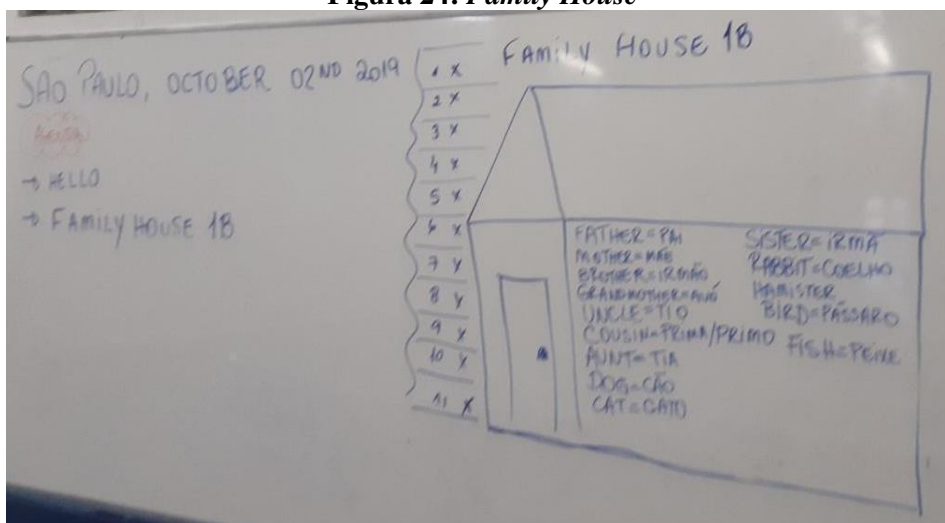 Figura 24: Family House
SÃO PAULO, OCTOBER 02ND 2019
AGENDA
→ HELLO
→ FAMILY HOUSE 1B
1 X
2 X
3 X
4 X
5 X
6 X
7 X
8 X
9 X
10 X
11 X
FAMILY HOUSE 1B
FATHER = PAI
MOTHER = MÃE
BROTHER = IRMÃO
GRANDMOTHER = AVÓ
UNCLE = TIO
COUSIN = PRIMA/PRIMO
AUNT = TIA
DOG = CÃO
CAT = GATO
SISTER = IRMÃ
RABBIT = COELHO
HAMISTER
BIRD = PÁSSARO
FISH = PEIXE